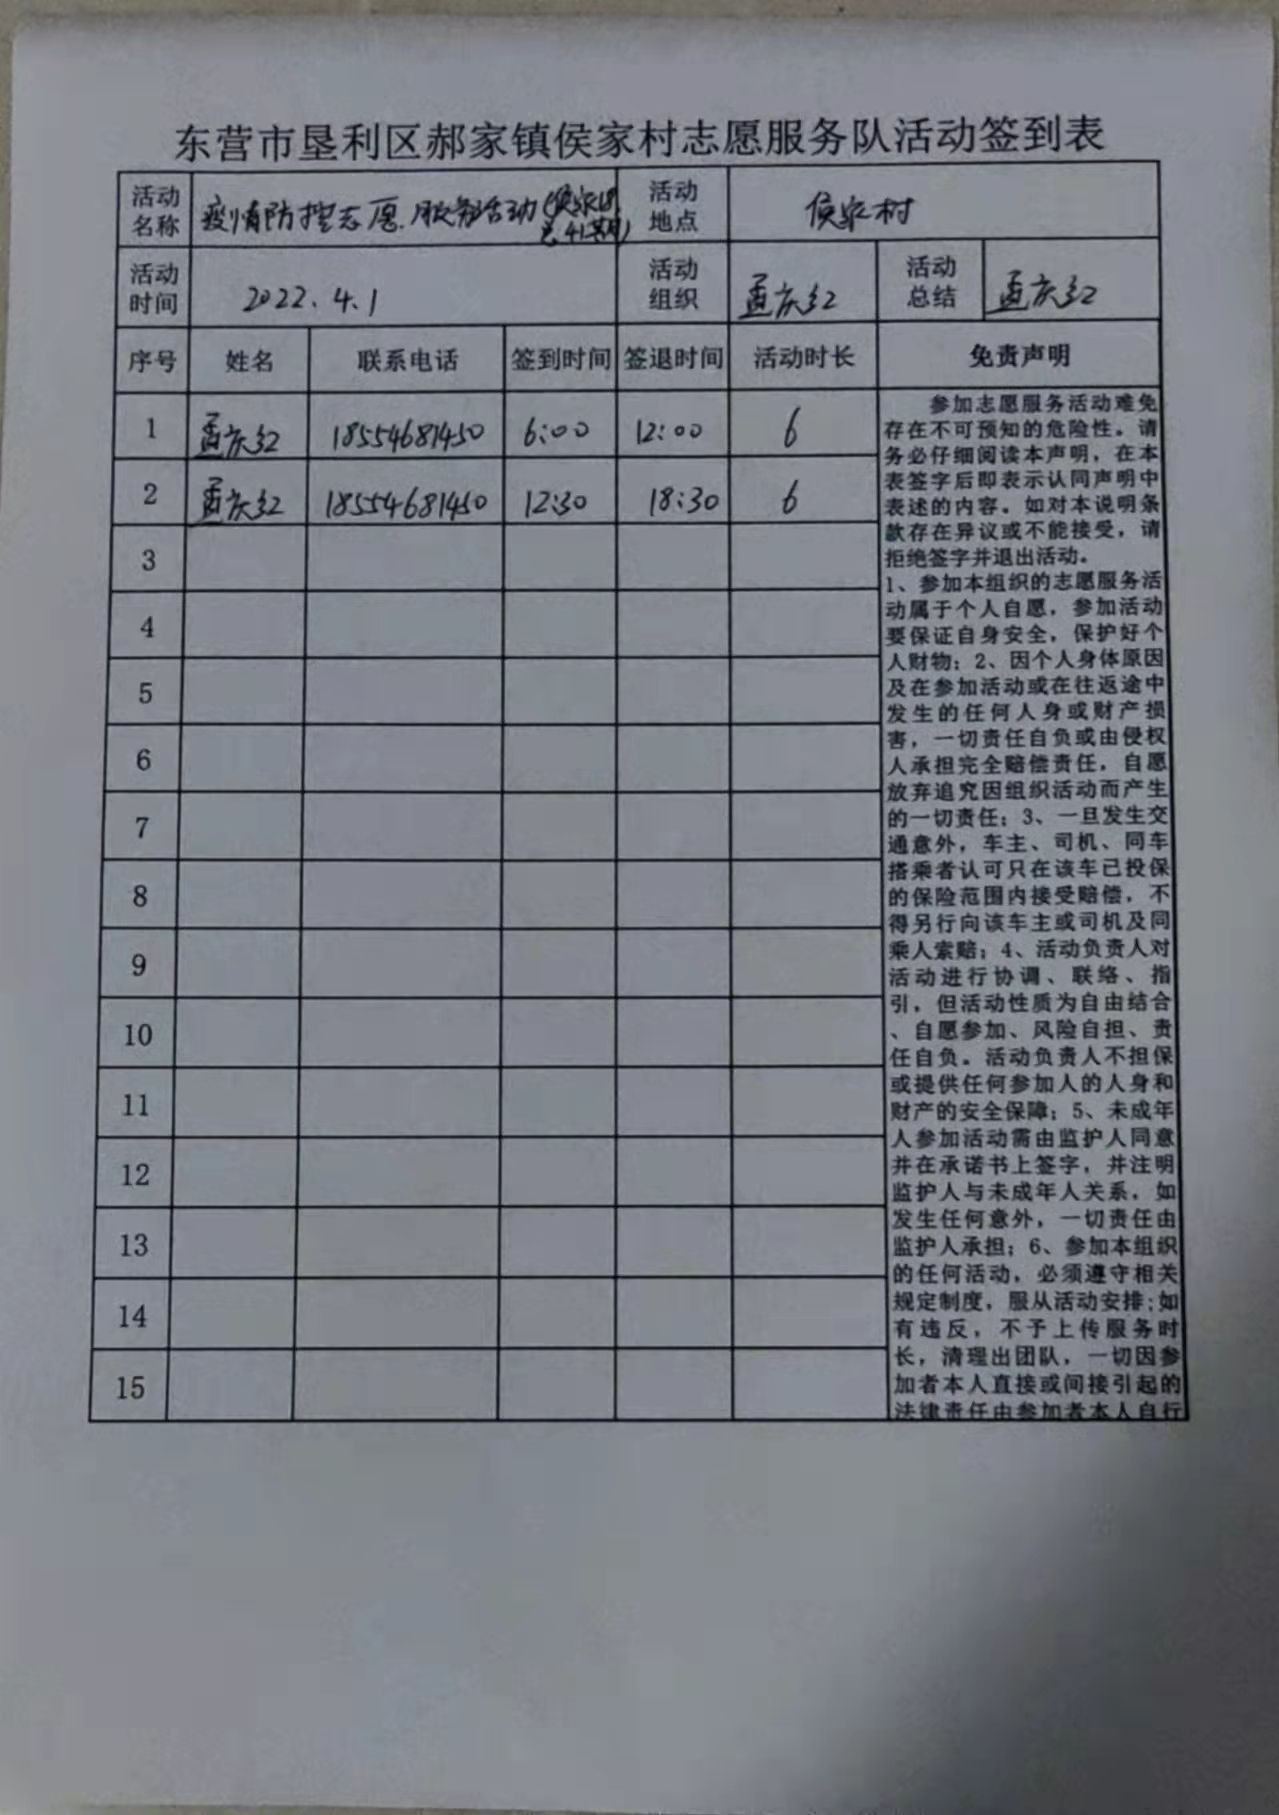 东营市垦利区郝家镇侯家村志愿服务队活动签到表
活动名称 疫情防控志愿服务活动(侯家 活动地点 侯家村
活动时间 2022.4.1 活动组织 孟庆红 活动总结 孟庆红
序号 姓名 联系电话 签到时间 签退时间 活动时长 免责声明
1 孟庆红 18554681450 6:00 12:00 6
2 孟庆红 18554681450 12:30 18:30 6
3
4
5
6
7
8
9
10
11
12
13
14
15
参加志愿服务活动难免
存在不可预知的危险性。请
务必仔细阅读本声明，在本
表签字后即表示认同声明中
表述的内容。如对本说明条
款存在异议或不能接受，请
拒绝签字并退出活动。
1、参加本组织的志愿服务活
动属于个人自愿，参加活动
要保证自身安全，保护好个
人财物；2、因个人身体原因
及在参加活动或在往返途中
发生的任何人身或财产损
害，一切责任自负或由侵权
人承担完全赔偿责任，自愿
放弃追究因组织活动而产生
的一切责任；3、一旦发生交
通意外，车主、司机、同车
搭乘者认可只在该车已投保
的保险范围内接受赔偿，不
得另行向该车主或司机及同
乘人索赔；4、活动负责人对
活动进行协调、联络、指
引，但活动性质为自由结合
、自愿参加、风险自担、责
任自负。活动负责人不担保
或提供任何参加人的人身和
财产的安全保障；5、未成年
人参加活动需由监护人同意
并在承诺书上签字，并注明
监护人与未成年人关系，如
发生任何意外，一切责任由
监护人承担；6、参加本组织
的任何活动，必须遵守相关
规定制度，服从活动安排;如
有违反，不予上传服务时
长，清理出团队，一切因参
加者本人直接或间接引起的
法律责任由参加者本人自行